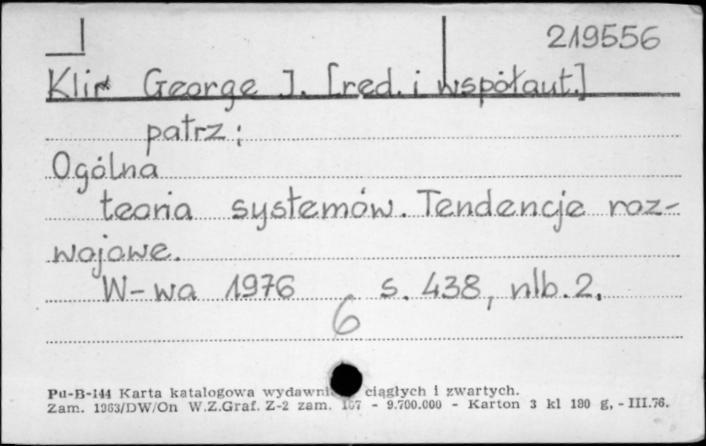 219556
Klir George J. [red. i współaut.]
patrz:
Ogólna
teoria systemów. Tendencje roz-
wojowe.
W-wa 1976 s. 438, nlb. 2.
6
Pu-B-144 Karta katalogowa wydawni ciągłych i zwartych.
Zam. 1963/DW/On W.Z.Graf. Z-2 zam. 167 - 9.700.000 - Karton 3 kl 180 g, - III.76.